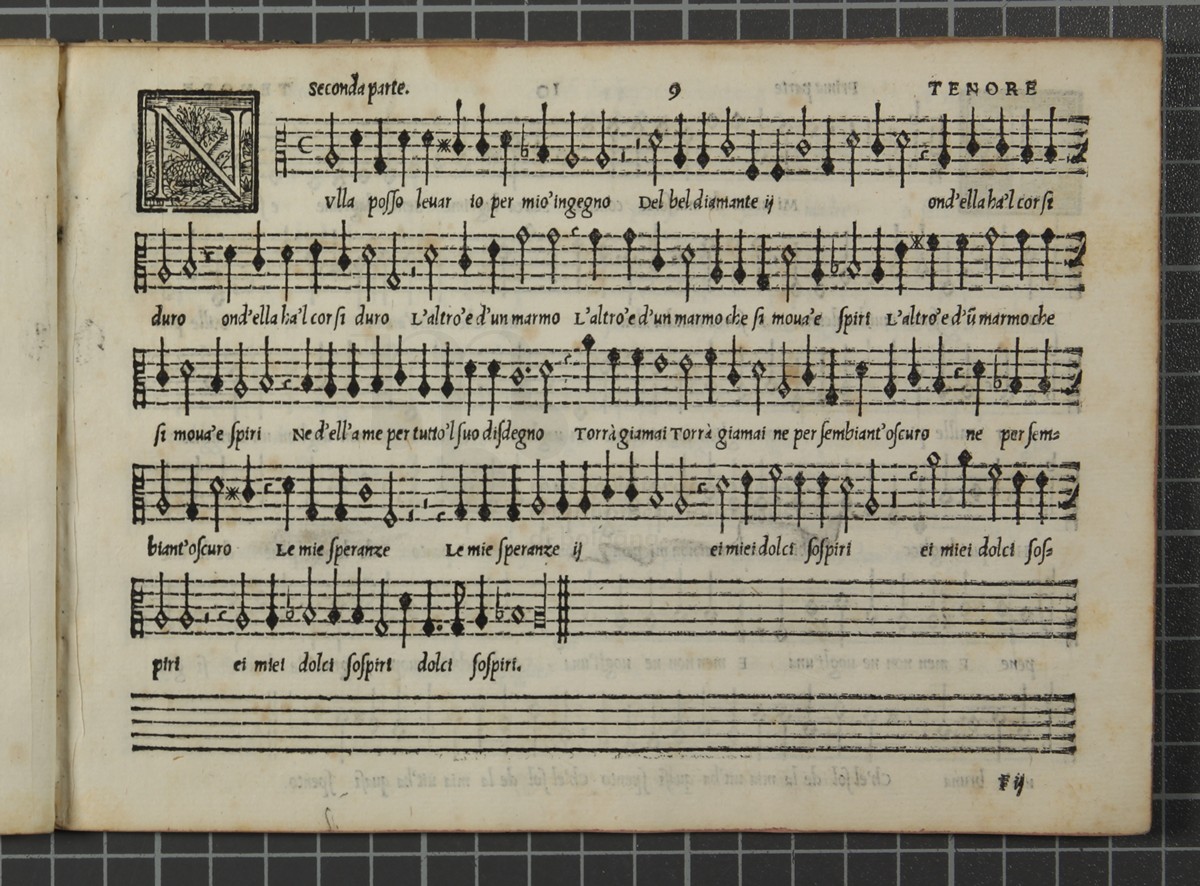 Seconda parte. 9 TENORE
N
Vlla posso leuar io per mio'ingegno Del bel diamante ij ond'ella ha'l cor si
duro ond'ella ha'l cor si duro L'altro'e d'un marmo L'altro'e d'un marmo che si moua'e spiri L'altro'e d'ũ marmo che
si moua'e spiri Ne d'ell'a me per tutto'l suo disdegno Torrà giamai Torrà giamai ne per sembiant'oscuro ne per sem=
biant'oscuro Le mie speranze Le mie speranze ij ei miei dolci sospiri ei miei dolci sos=
piri ei miei dolci sospiri dolci sospiri.
F ij